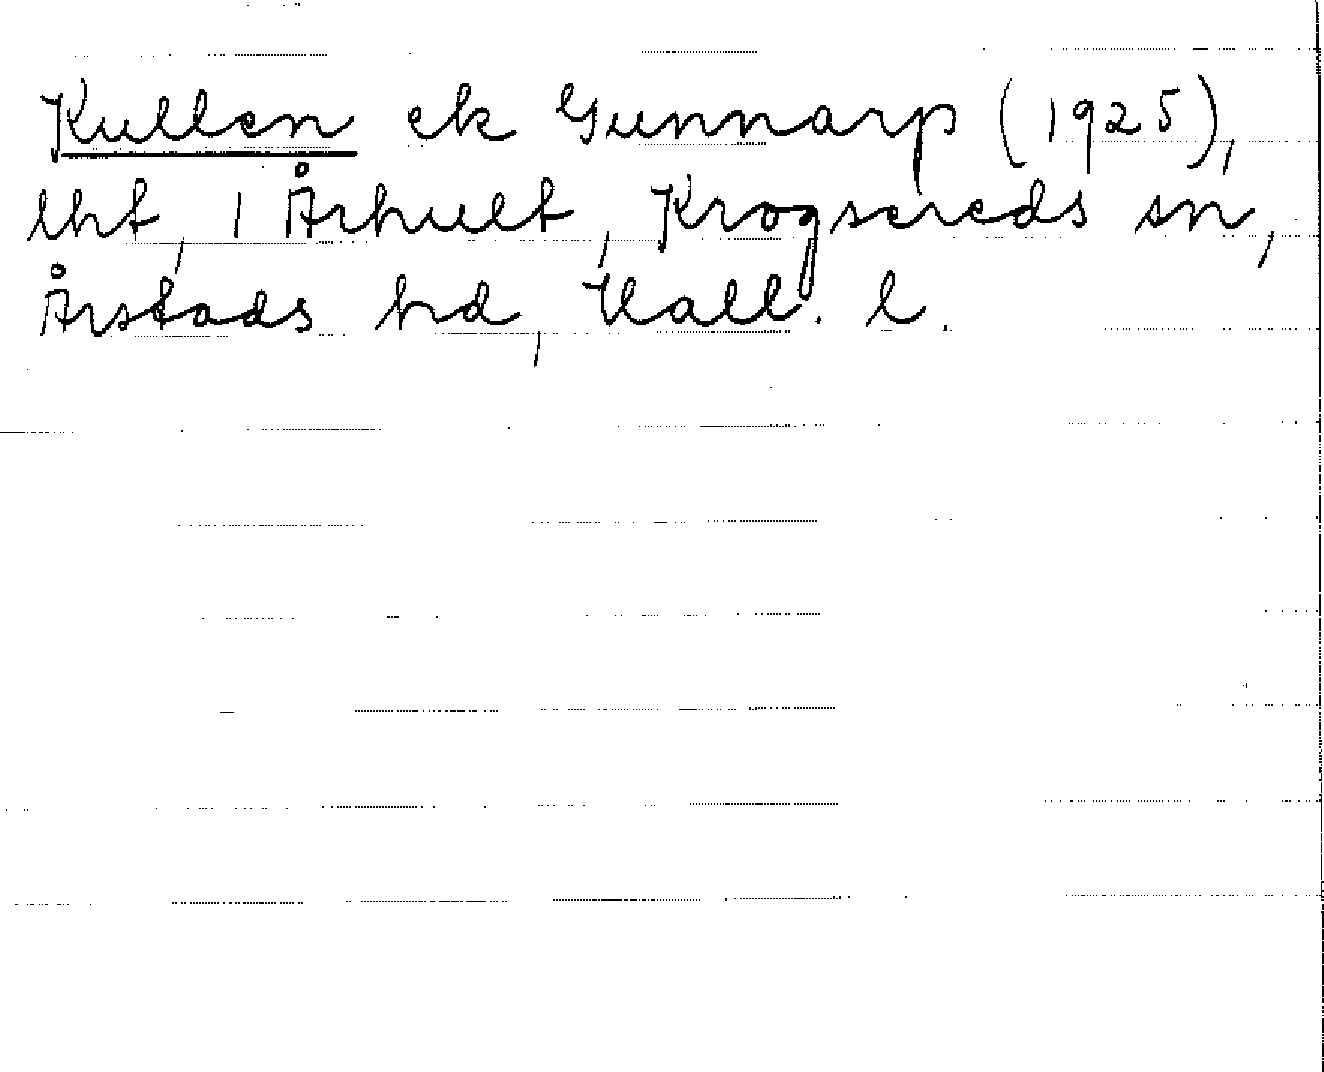 Kullen ek Gunnarp (1925),
lht, 1 Århult, Krogsereds sn,
Årstads hd, Hall. l.